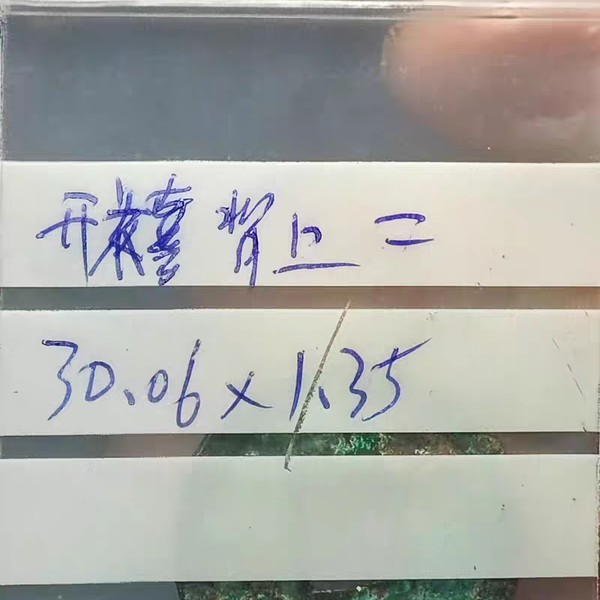 开禧 背上二
30.06×1.35